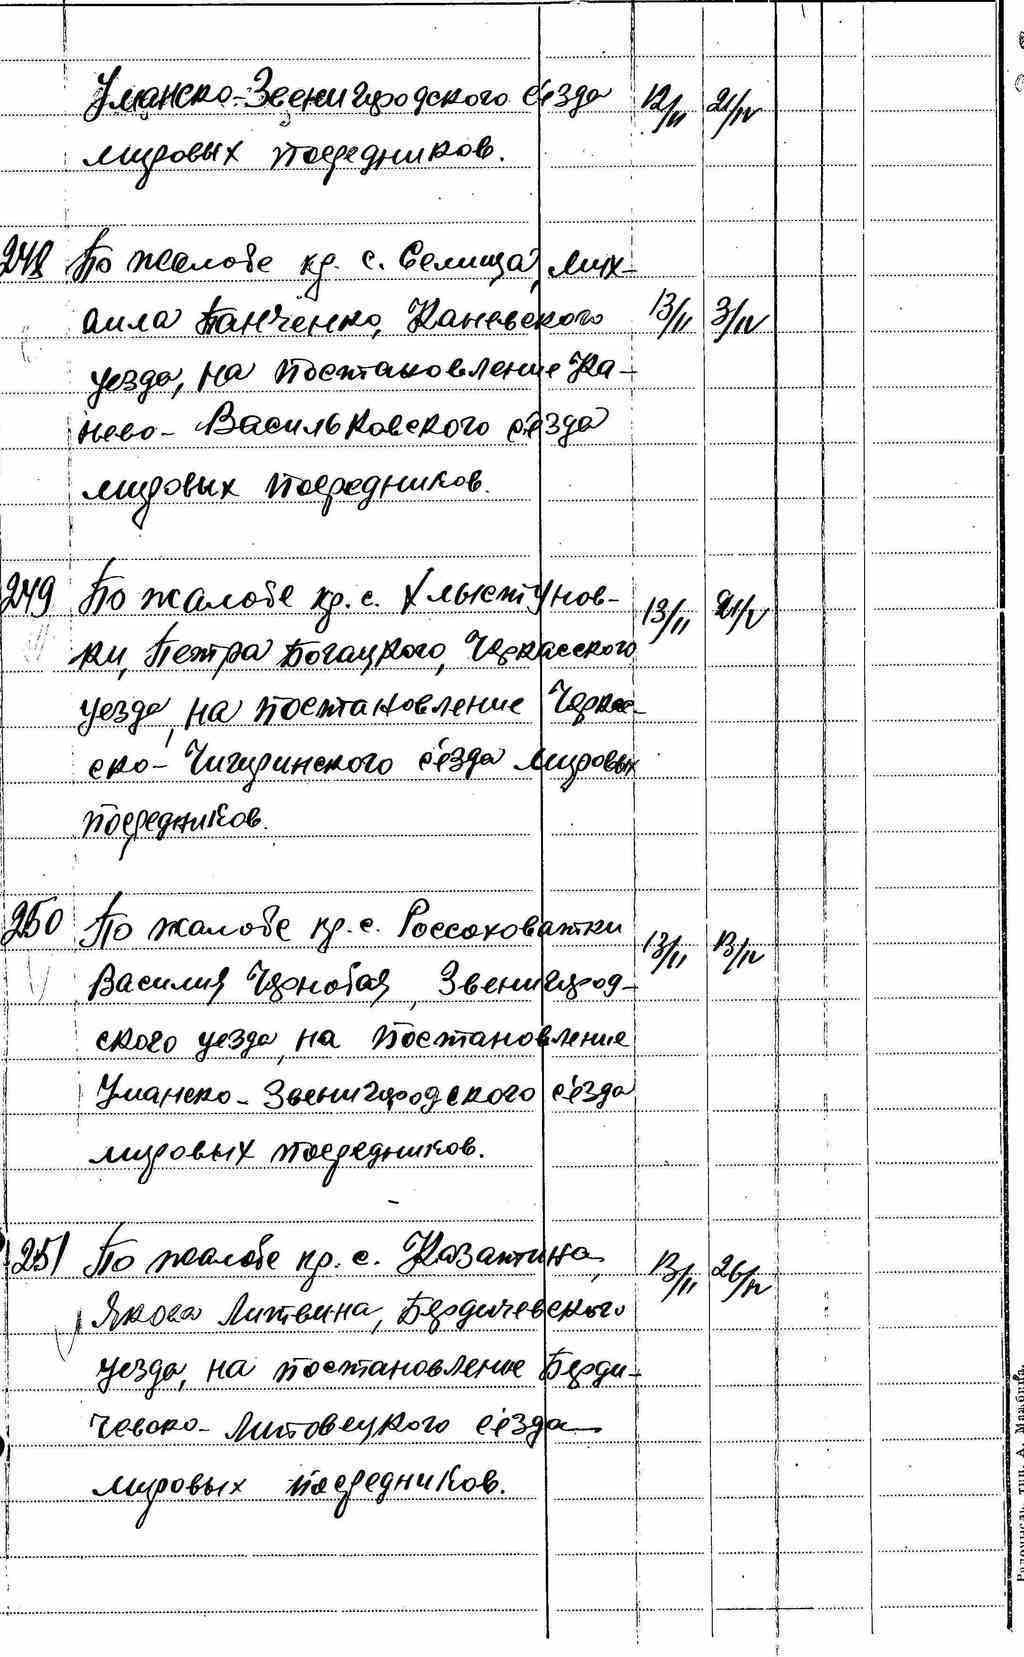 Уманско-Звенигородского с'езда 12/II 21/IV
мировых посредников.
248 По жалобе кр. с. Селища, Мих-
аила Панченко, Каневского 13/II 3/IV
уезда, на постановление Ка-
нево-Васильковского с'езда
мировых посредников.
249 По жалобе кр. с. Хлыстунов- 13/II 21/V
ки, Петра Богацкого, Черкасского
уезда, на постановление Черкас-
ско-Чигиринского с'езда мировых
посредников.
250 По жалобе кр. с. Россоховатки 13/II 13/IV
Василия Чернобая, Звенигород-
ского уезда, на постановление
Уманско-Звенигородского с'езда
мировых посредников.
251 По жалобе кр. с. Казатина, 13/II 26/IV
Якова Литвина, Бердичевского
уезда, на постановление Берди-
чевско-Липовецкого с'езда
мировых посредников.
тип. А.